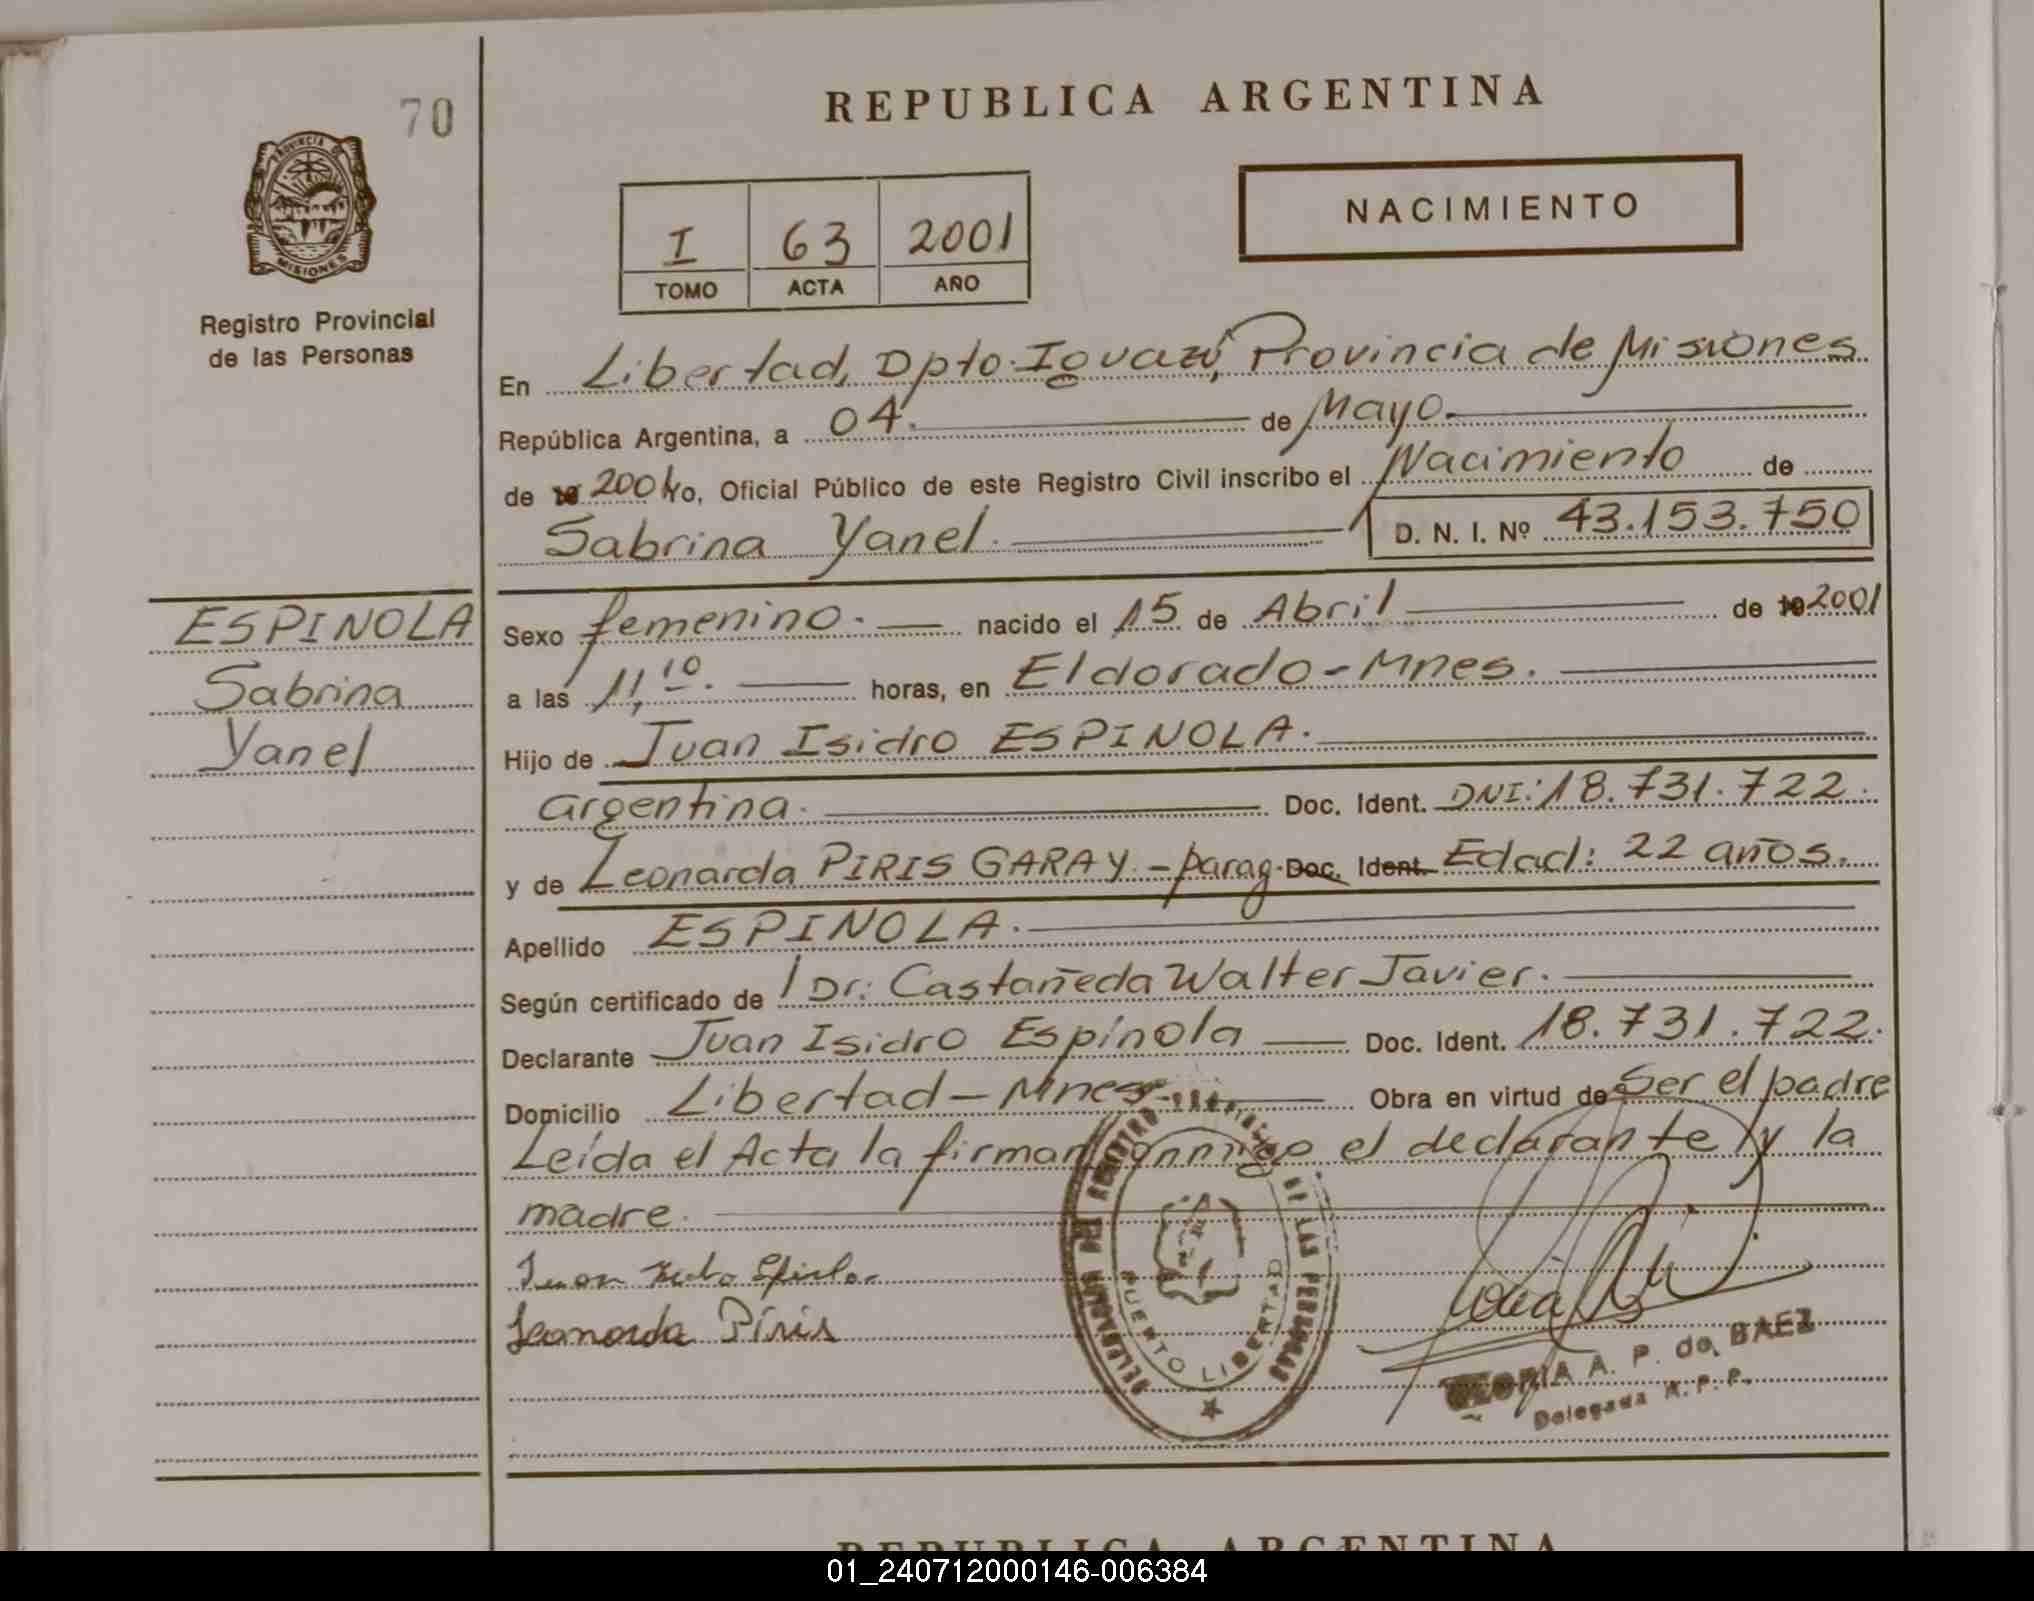 70
REPUBLICA ARGENTINA
PROVINCIA DE
MISIONES
Registro Provincial
de las Personas
I 63 2001
TOMO ACTA AÑO
NACIMIENTO
En Libertad, Dpto. Iguazú, Provincia de Misiones
República Argentina, a 04. de Mayo.
de 19 2001 yo, Oficial Público de este Registro Civil inscribo el Nacimiento de
Sabrina Yanel. D. N. I. Nº 43.153.750
ESPINOLA
Sabrina
Yanel
Sexo femenino. nacido el 15 de Abril de 19 2001
a las 11,10. horas, en Eldorado - Mnes.
Hijo de Juan Isidro ESPINOLA.
argentina. Doc. Ident. DNI: 18.731.722.
y de Leonarda PIRIS GARAY. - parag. Doc. Ident. Edad: 22 años.
Apellido ESPINOLA.
Según certificado de Dr: Castañeda Walter Javier.
Declarante Juan Isidro Espínola Doc. Ident. 18.731.722.
Domicilio Libertad - Mnes. Obra en virtud de Ser el padre
Leída el Acta la firman conmigo el declarante y la
madre.
Juan Espinola
Leonarda Piris
DELEGADA DEL REGISTRO DE LAS PERSONAS
PUERTO LIBERTAD
A. P. de BAEZ
Delegada R. P. P.
REPUBLICA ARGENTINA
01_240712000146-006384